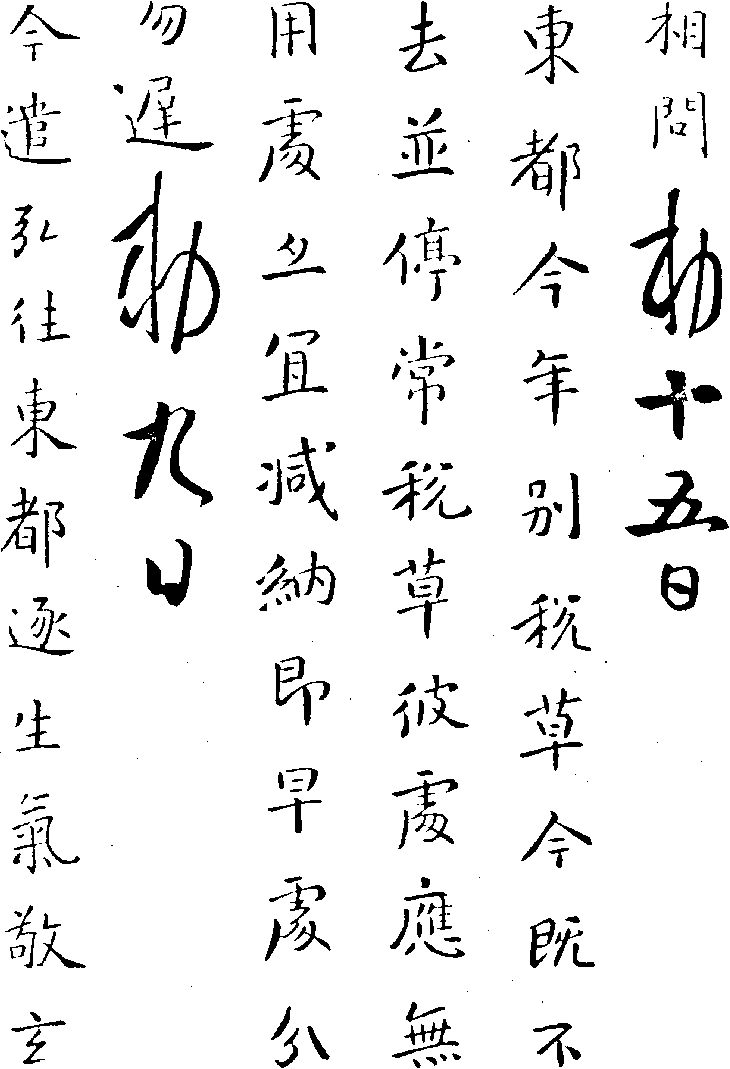 相問敕十五日
東都今年別稅草今既不
去並停常稅草彼處應無
用處亦宜減納即早處分
勿遲敕九日
今遣弘往東都逐生氣敬玄